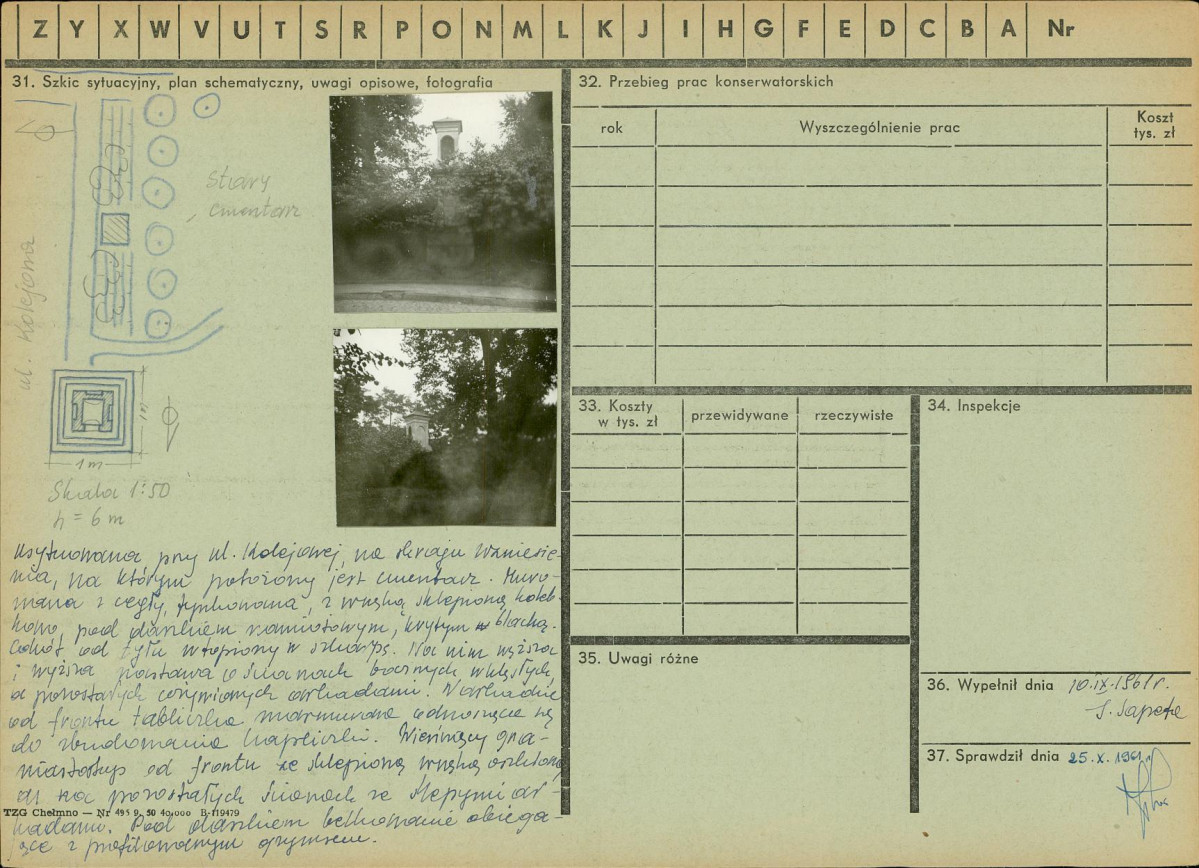 Z Y X W V U T S R P O N M L K J I H G F E D C B A Nr
31. Szkic sytuacyjny, plan schematyczny, uwagi opisowe, fotografia
Stary
cmentarz
ul. Kolejowa
1 m
1 m
Skala 1:50
h = 6 m
Usytuowana przy ul. Kolejowej, na skraju wzniesie-
nia, na którym położony jest cmentarz. Muro-
wana z cegły, tynkowana, z wnęką sklepioną koleb-
kowo, pod daszkiem namiotowym, krytym blachą.
Cokół od tyłu wtopiony w skarpę. Na nim węższa
i wyższa podstawa o ścianach bocznych wklęsłych,
a pozostałych arkadami. W arkadzie
od frontu tabliczka marmurowa odnosząca się
do zbudowania kapliczki. Wieńczący gra-
niastosłup od frontu ze sklepioną wnęką
na pozostałych ścianach ze ślepymi ar-
kadami. Pod daszkiem belkowanie obiega-
jące z profilowanym gzymsem.
TZG Chełmno — Nr 495 9. 50 40.000 B-119479
32. Przebieg prac konserwatorskich
rok
Wyszczególnienie prac
Koszt
tys. zł
33. Koszty
w tys. zł
przewidywane
rzeczywiste
34. Inspekcje
35. Uwagi różne
36. Wypełnił dnia 10.IX.1961r.
37. Sprawdził dnia 25.X.1961